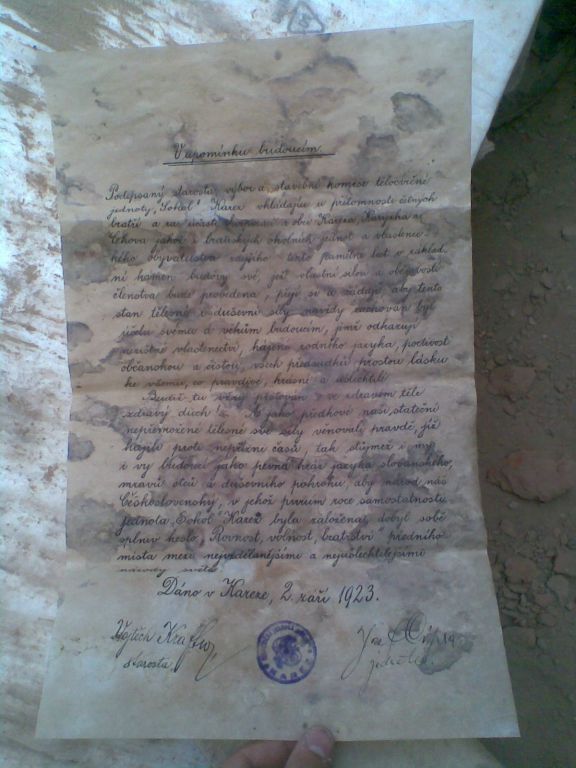 V upomínku budoucím.
Podepsaný starosta, výbor a stavební komise tělocvičné
jednoty „Sokol" Kařez vkládajíce u přítomnosti četných
bratří a za účasti z obcí Kařeza, Kařízka a
jakož i bratrských okolních jednot a vlastenec-
kého obyvatelstva zdejšího tento pamětní list v základ-
ní kámen budovy své, jež vlastní silou a obětavostí
členstva bude provedena, přejí si a žádají, aby tento
stan tělesné a duševní síly navždy zachován byl
účelu svému a věkům budoucím, jimž odkazují
nezištné vlastenectví, hájení rodného jazyka, poctivost
občanskou a čistou, všech předsudků prostou lásku
ke všemu, co pravdivé, krásné a ušlechtilé.
Budiž tu vždy pěstován ve zdravém těle
zdravý duch. A jako předkové naši stateční
nepřemožené tělesné své síly věnovali pravdě, již
hájili proti nepřízni časů, tak stůjmež i my
i vy budoucí jako pevná hráz jazyka slovanského,
mravů otců a duševního pokroku, aby národ náš
Československý, v jehož prvním roce samostatnosti
jednota „Sokol" Kařez byla založena, dobyl sobě
heslo: Rovnost, volnost, bratrství předního
místa mezi nejvzdělanějšími a nejušlechtilejšími
národy světa.
Dáno v Kařeze, 2. září 1923.
Vojtěch
starosta.
jednatel.
KAŘEZ